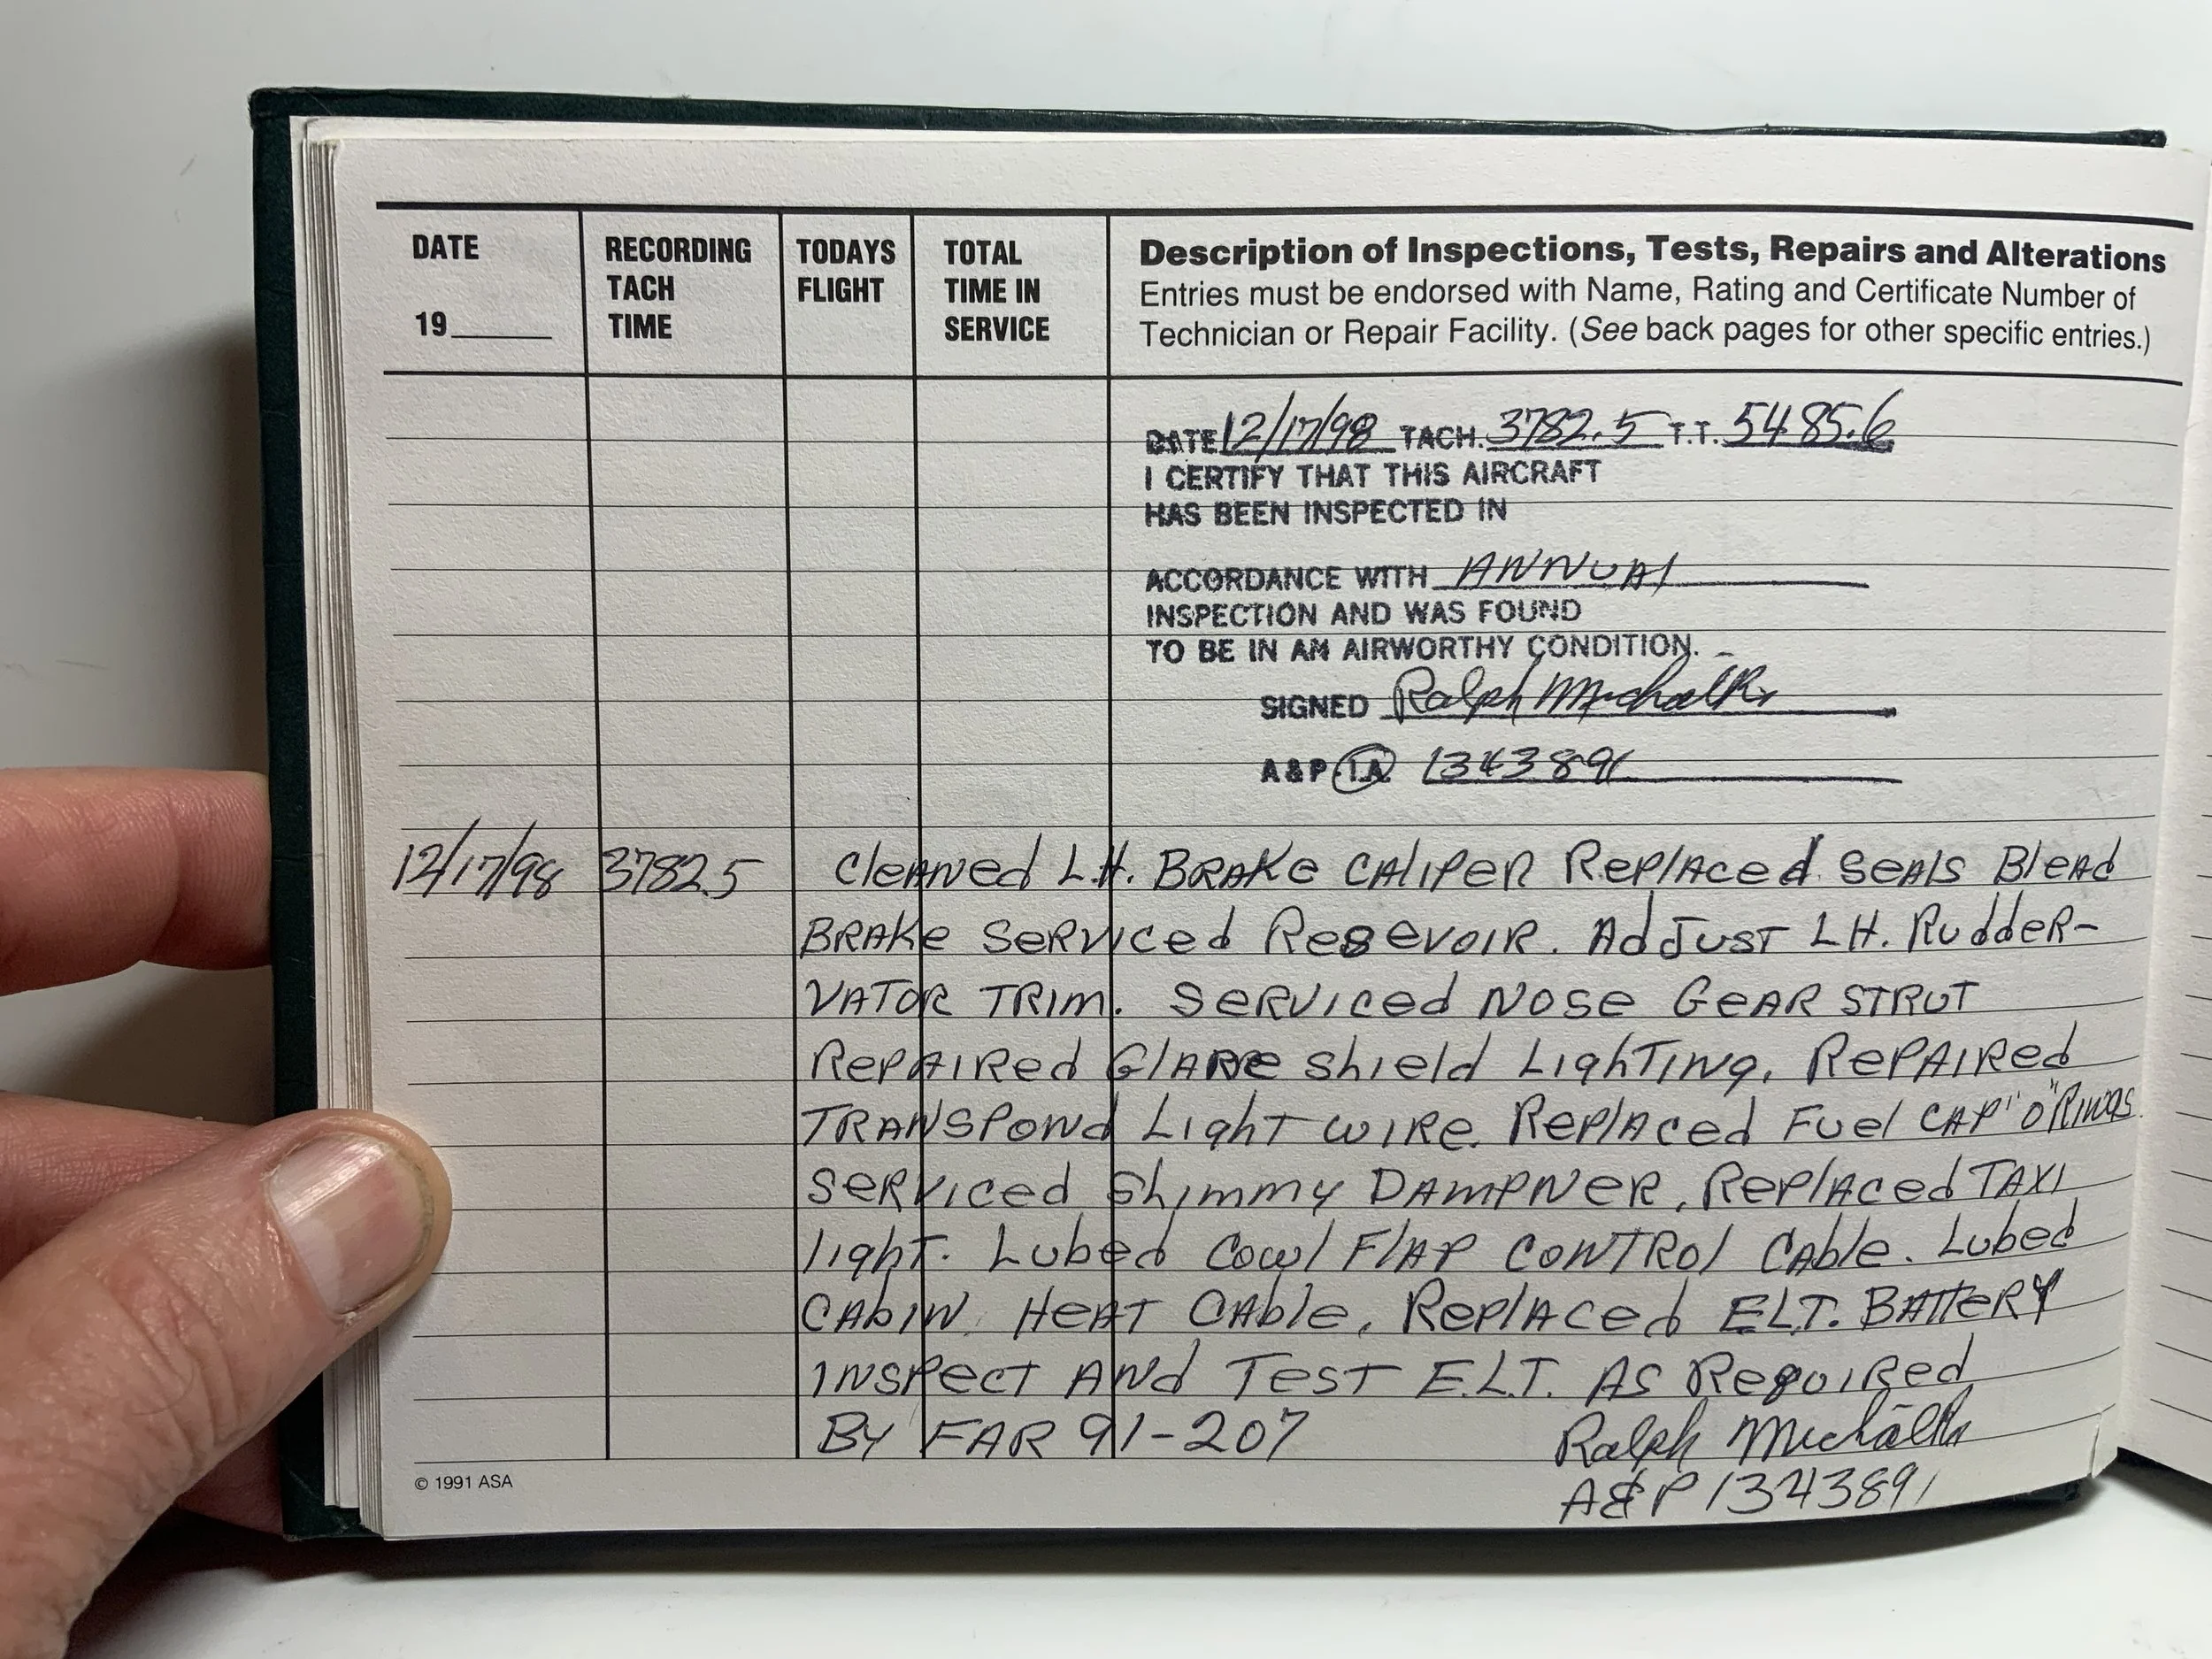 DATE RECORDING TODAYS TOTAL Description of Inspections, Tests, Repairs and Alterations
TACH FLIGHT TIME IN Entries must be endorsed with Name, Rating and Certificate Number of
19 TIME SERVICE Technician or Repair Facility. (See back pages for other specific entries.)
DATE 12/17/98 TACH. 3782.5 T.T. 5485.6
I CERTIFY THAT THIS AIRCRAFT
HAS BEEN INSPECTED IN
ACCORDANCE WITH ANNUAl
INSPECTION AND WAS FOUND
TO BE IN AM AIRWORTHY CONDITION.
SIGNED Ralph Michalk
A&P I.A. 1343891
12/17/98 3782.5 Cleaned L.H. BRAKe CAliPeR RePlAced SeAls BleAd
BRAKe SeRViced ReseVoIR. AdJusT LH. RuddeR-
VATOR TRIM. SeRViced NOSe GeAR STRUT
RePAIRed GlARe Shield LighTing. RePAIRed
TRANSPONd LighT WIRe. RePlAced Fuel CAP "O" RINgs
SeRViced Shimmy DAMPNeR. RePlAced TAXI
lighT. Lubed Cowl FlAP CONTROl CAble. Lubed
CAbIN HeAT CAble. RePlAced ELT. BATTeRY
INSPecT ANd TeST E.L.T. AS RequiRed
By FAR 91-207 Ralph Michalk
A&P 1343891
© 1991 ASA